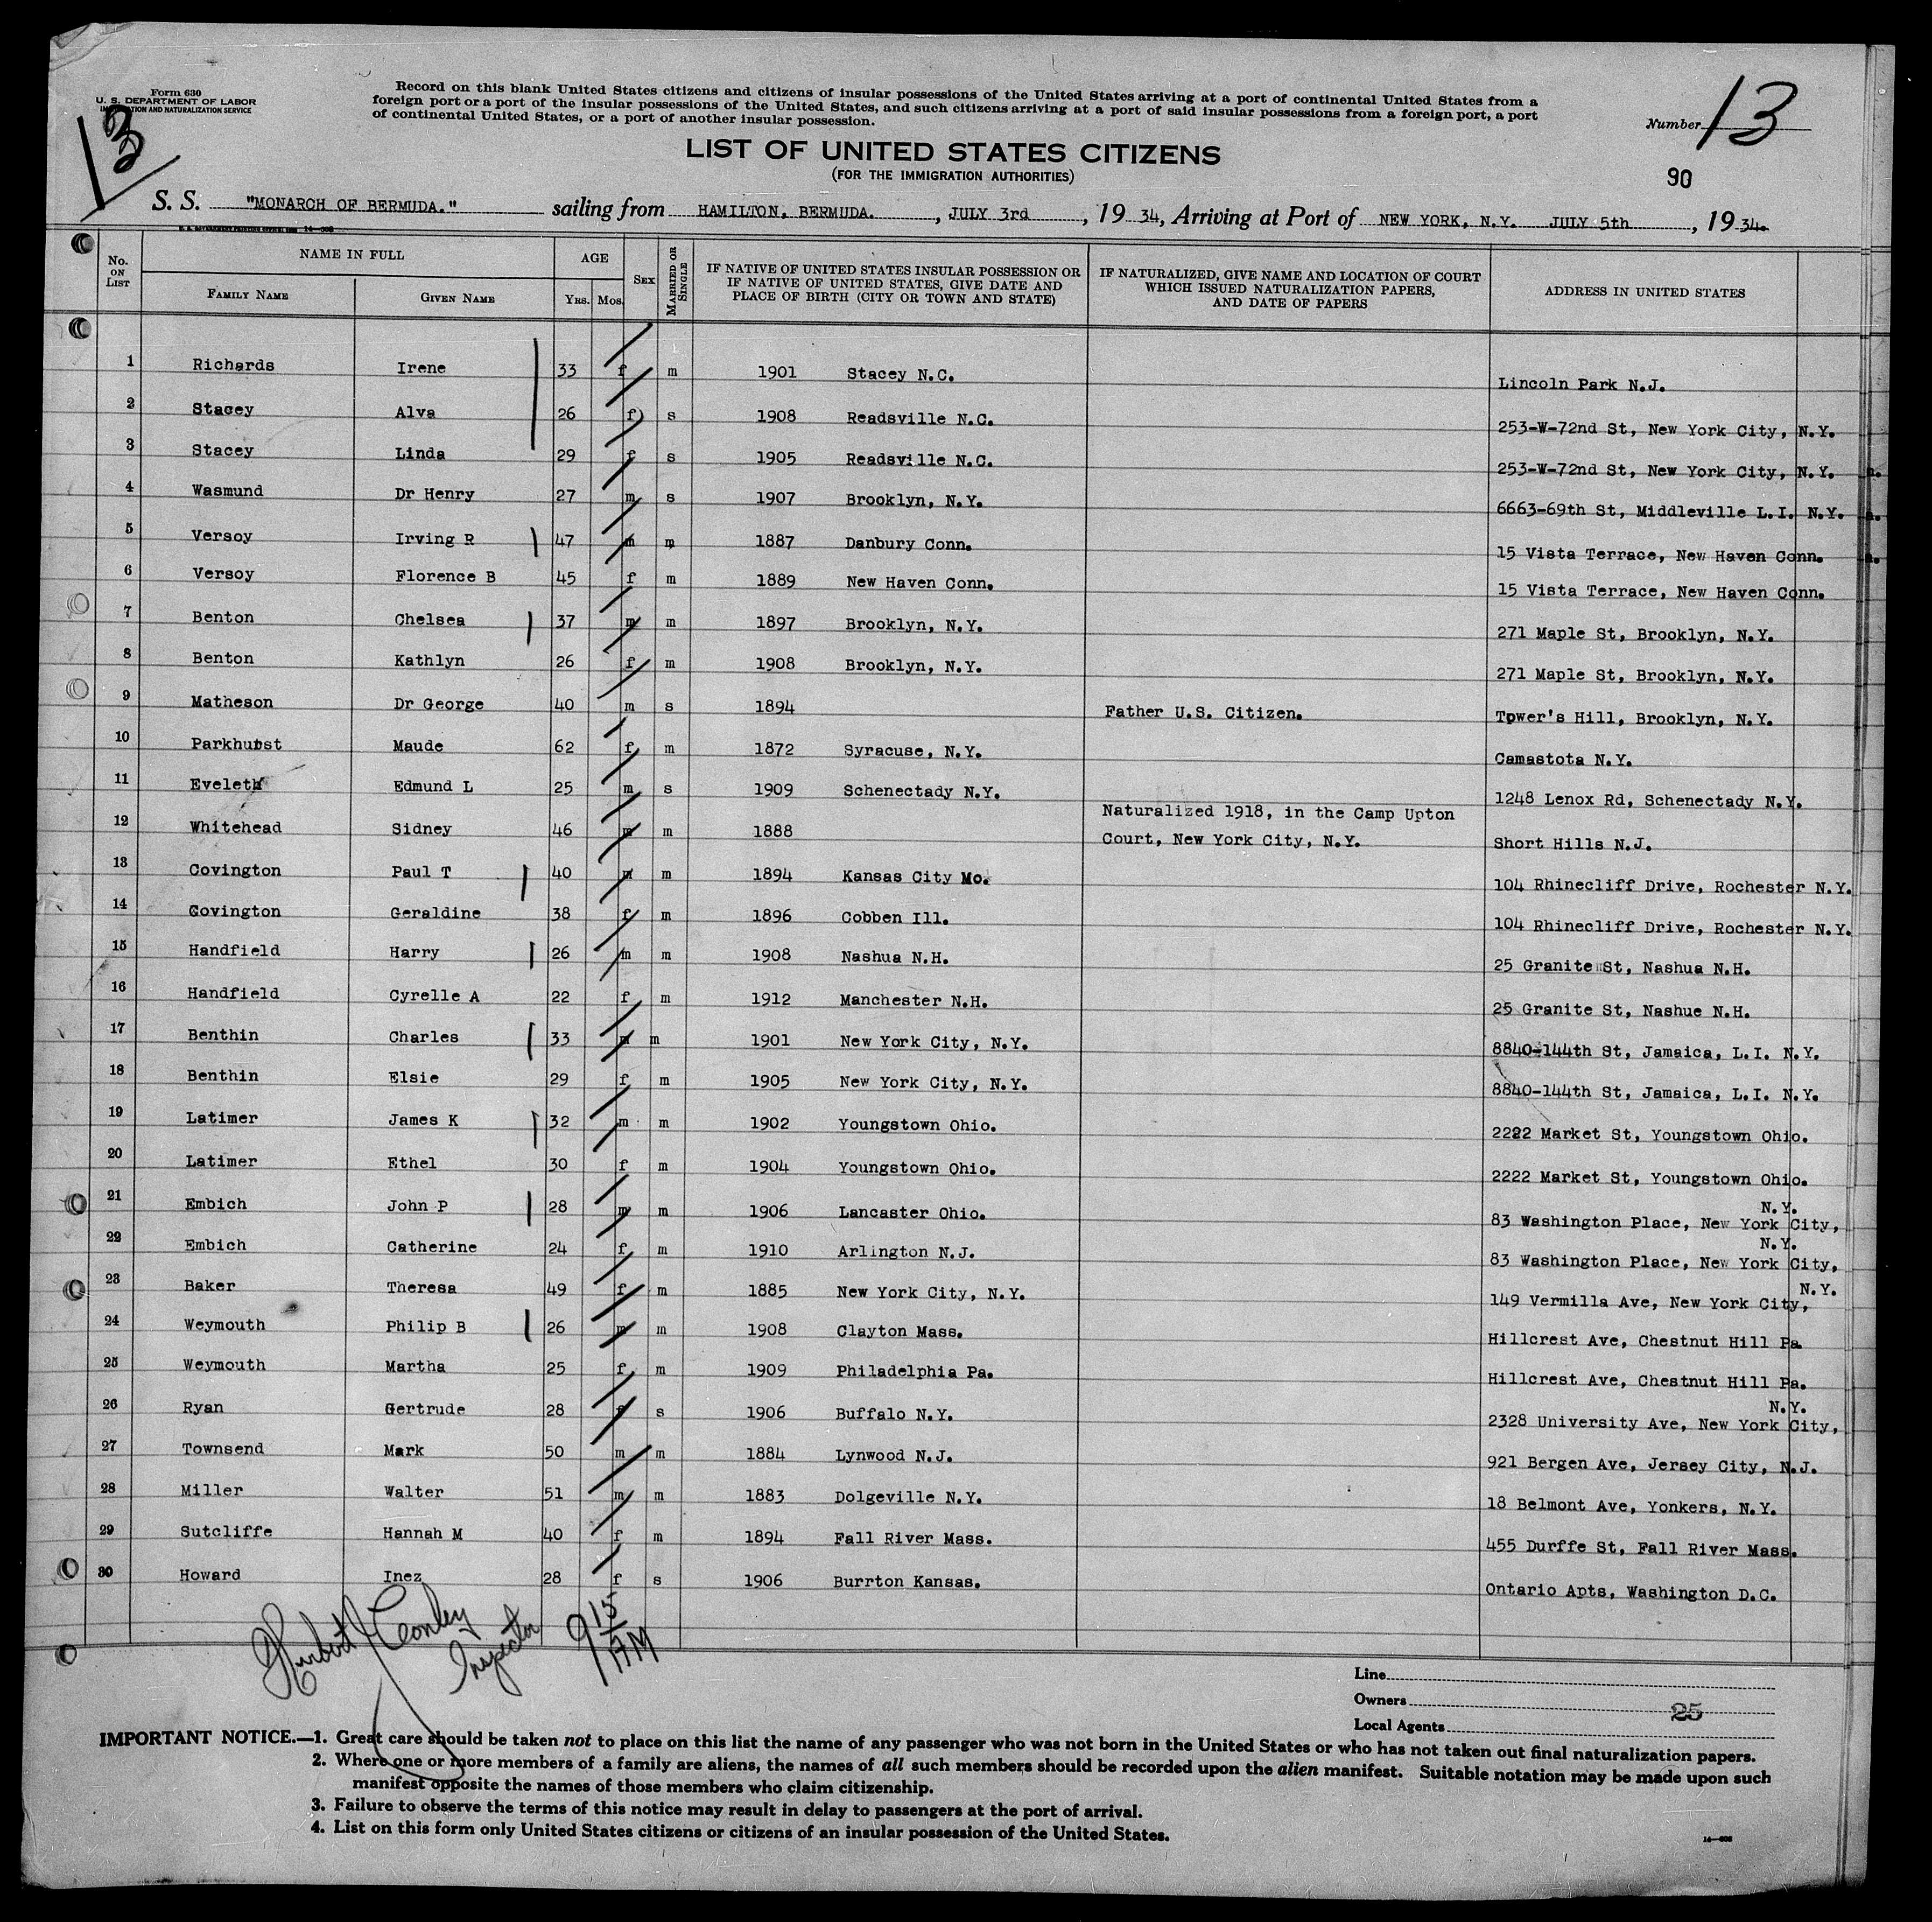 Form 630
U. S. DEPARTMENT OF LABOR
IMMIGRATION AND NATURALIZATION SERVICE
13
Record on this blank United States citizens and citizens of insular possessions of the United States arriving at a port of continental United States from a
foreign port or a port of the insular possessions of the United States, and such citizens arriving at a port of said insular possessions from a foreign port, a port
of continental United States, or a port of another insular possession.
Number 13
LIST OF UNITED STATES CITIZENS
(FOR THE IMMIGRATION AUTHORITIES)
90
S. S. "MONARCH OF BERMUDA." sailing from HAMILTON, BERMUDA. , JULY 3rd , 19 34, Arriving at Port of NEW YORK, N.Y. JULY 5th , 19 34.
No. ON LIST NAME IN FULL FAMILY NAME GIVEN NAME AGE YRS. MOS. SEX MARRIED OR SINGLE
IF NATIVE OF UNITED STATES INSULAR POSSESSION OR
IF NATIVE OF UNITED STATES, GIVE DATE AND
PLACE OF BIRTH (CITY OR TOWN AND STATE)
IF NATURALIZED, GIVE NAME AND LOCATION OF COURT
WHICH ISSUED NATURALIZATION PAPERS,
AND DATE OF PAPERS
ADDRESS IN UNITED STATES
1 Richards Irene 33 f m 1901 Stacey N.C. Lincoln Park N.J.
2 Stacey Alva 26 f s 1908 Readsville N.C. 253-W-72nd St, New York City, N.Y.
3 Stacey Linda 29 f s 1905 Readsville N.C. 253-W-72nd St, New York City, N.Y.
4 Wasmund Dr Henry 27 m s 1907 Brooklyn, N.Y. 6663-69th St, Middleville L.I. N.Y.
5 Versoy Irving R 47 m m 1887 Danbury Conn. 15 Vista Terrace, New Haven Conn.
6 Versoy Florence B 45 f m 1889 New Haven Conn. 15 Vista Terrace, New Haven Conn.
7 Benton Chelsea 37 m m 1897 Brooklyn, N.Y. 271 Maple St, Brooklyn, N.Y.
8 Benton Kathlyn 26 f m 1908 Brooklyn, N.Y. 271 Maple St, Brooklyn, N.Y.
9 Matheson Dr George 40 m s 1894 Father U.S. Citizen. Tower's Hill, Brooklyn, N.Y.
10 Parkhurst Maude 62 f m 1872 Syracuse, N.Y. Camastota N.Y.
11 Eveleth Edmund L 25 m s 1909 Schenectady N.Y. 1248 Lenox Rd, Schenectady N.Y.
12 Whitehead Sidney 46 m m 1888 Naturalized 1918, in the Camp Upton
Court, New York City, N.Y. Short Hills N.J.
13 Covington Paul T 40 m m 1894 Kansas City Mo. 104 Rhinecliff Drive, Rochester N.Y.
14 Covington Geraldine 38 f m 1896 Cobben Ill. 104 Rhinecliff Drive, Rochester N.Y.
15 Handfield Harry 26 m m 1908 Nashua N.H. 25 Granite St, Nashua N.H.
16 Handfield Cyrelle A 22 f m 1912 Manchester N.H. 25 Granite St, Nashue N.H.
17 Benthin Charles 33 m m 1901 New York City, N.Y. 8840-144th St, Jamaica, L.I. N.Y.
18 Benthin Elsie 29 f m 1905 New York City, N.Y. 8840-144th St, Jamaica, L.I. N.Y.
19 Latimer James K 32 m m 1902 Youngstown Ohio. 2222 Market St, Youngstown Ohio.
20 Latimer Ethel 30 f m 1904 Youngstown Ohio. 2222 Market St, Youngstown Ohio.
21 Embich John P 28 m m 1906 Lancaster Ohio. 83 Washington Place, New York City, N.Y.
22 Embich Catherine 24 f m 1910 Arlington N.J. 83 Washington Place, New York City, N.Y.
23 Baker Theresa 49 f m 1885 New York City, N.Y. 149 Vermilla Ave, New York City, N.Y.
24 Weymouth Philip B 26 m m 1908 Clayton Mass. Hillcrest Ave, Chestnut Hill Pa.
25 Weymouth Martha 25 f m 1909 Philadelphia Pa. Hillcrest Ave, Chestnut Hill Pa.
26 Ryan Gertrude 28 f s 1906 Buffalo N.Y. 2328 University Ave, New York City, N.Y.
27 Townsend Mark 50 m m 1884 Lynwood N.J. 921 Bergen Ave, Jersey City, N.J.
28 Miller Walter 51 m m 1883 Dolgeville N.Y. 18 Belmont Ave, Yonkers, N.Y.
29 Sutcliffe Hannah M 40 f m 1894 Fall River Mass. 455 Durffe St, Fall River Mass.
30 Howard Inez 28 f s 1906 Burrton Kansas. Ontario Apts, Washington D.C.
Conley
Inspector
9 15 AM
Line
Owners
25
Local Agents
IMPORTANT NOTICE.—1. Great care should be taken not to place on this list the name of any passenger who was not born in the United States or who has not taken out final naturalization papers.
2. Where one or more members of a family are aliens, the names of all such members should be recorded upon the alien manifest. Suitable notation may be made upon such
manifest opposite the names of those members who claim citizenship.
3. Failure to observe the terms of this notice may result in delay to passengers at the port of arrival.
4. List on this form only United States citizens or citizens of an insular possession of the United States.